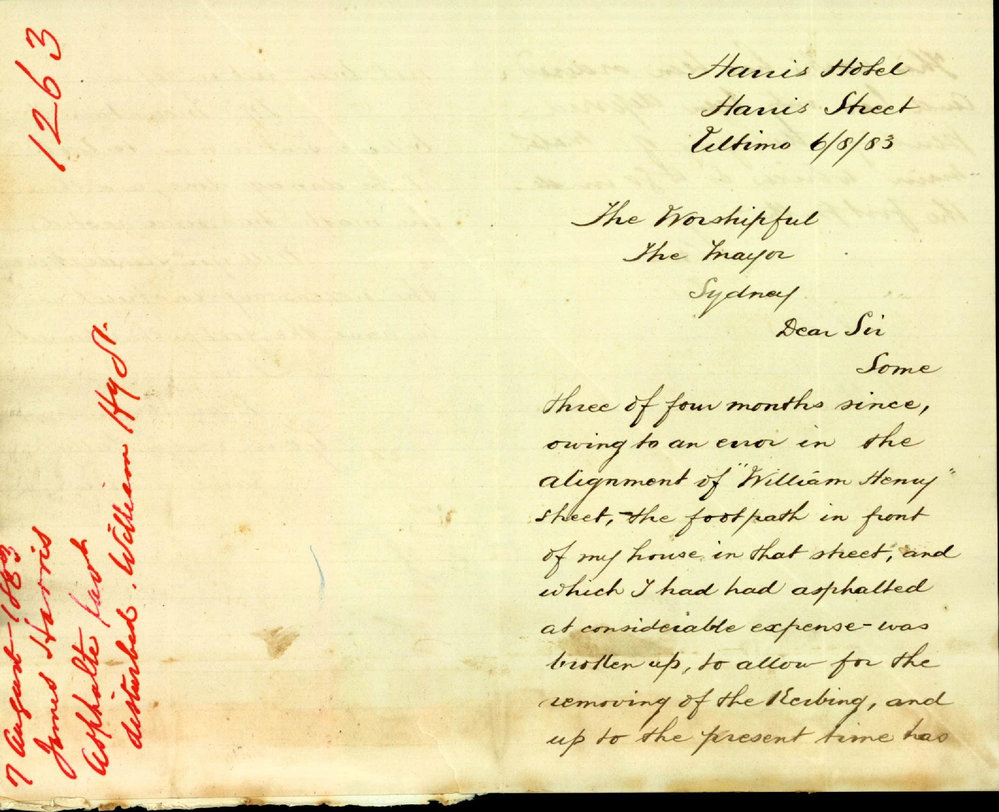 1263
7 August 1883
James Harris
Asphalte
disturbed. William Hy St.
Harris Hotel
Harris Street
Ultimo 6/8/83
The Worshipful
The Mayor
Sydney
Dear Sir
Some
three of four months since,
owing to an error in the
alignment of "William Henry"
street, - the footpath in front
of my house in that street, and
which I had had asphalted
at considerable expense - was
broken up, to allow for the
removing of the Kerbing, and
up to the present time has